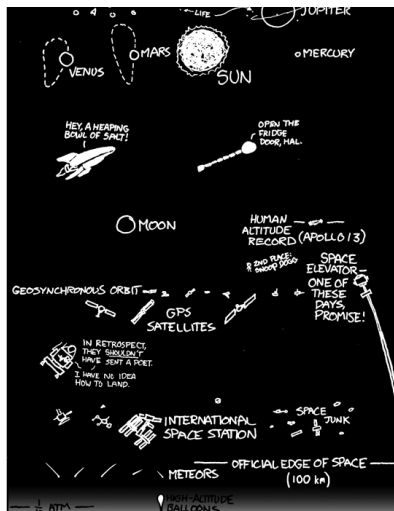 LIFE
JUPITER
VENUS
MARS
SUN
MERCURY
HEY, A HEAPING
BOWL OF SALT!
OPEN THE
FRIDGE
DOOR, HAL.
MOON
HUMAN
ALTITUDE
RECORD (APOLLO 13)
2ND PLACE:
SNOOP DOGG
SPACE
ELEVATOR—
ONE OF
THESE
DAYS,
PROMISE!
GEOSYNCHRONOUS ORBIT
GPS
SATELLITES
IN RETROSPECT,
THEY SHOULDN'T
HAVE SENT A POET.
I HAVE NO IDEA
HOW TO LAND.
INTERNATIONAL
SPACE STATION
SPACE
JUNK
METEORS
OFFICIAL EDGE OF SPACE
(100 km)
HIGH-ALTITUDE
BALLOONS
ATM